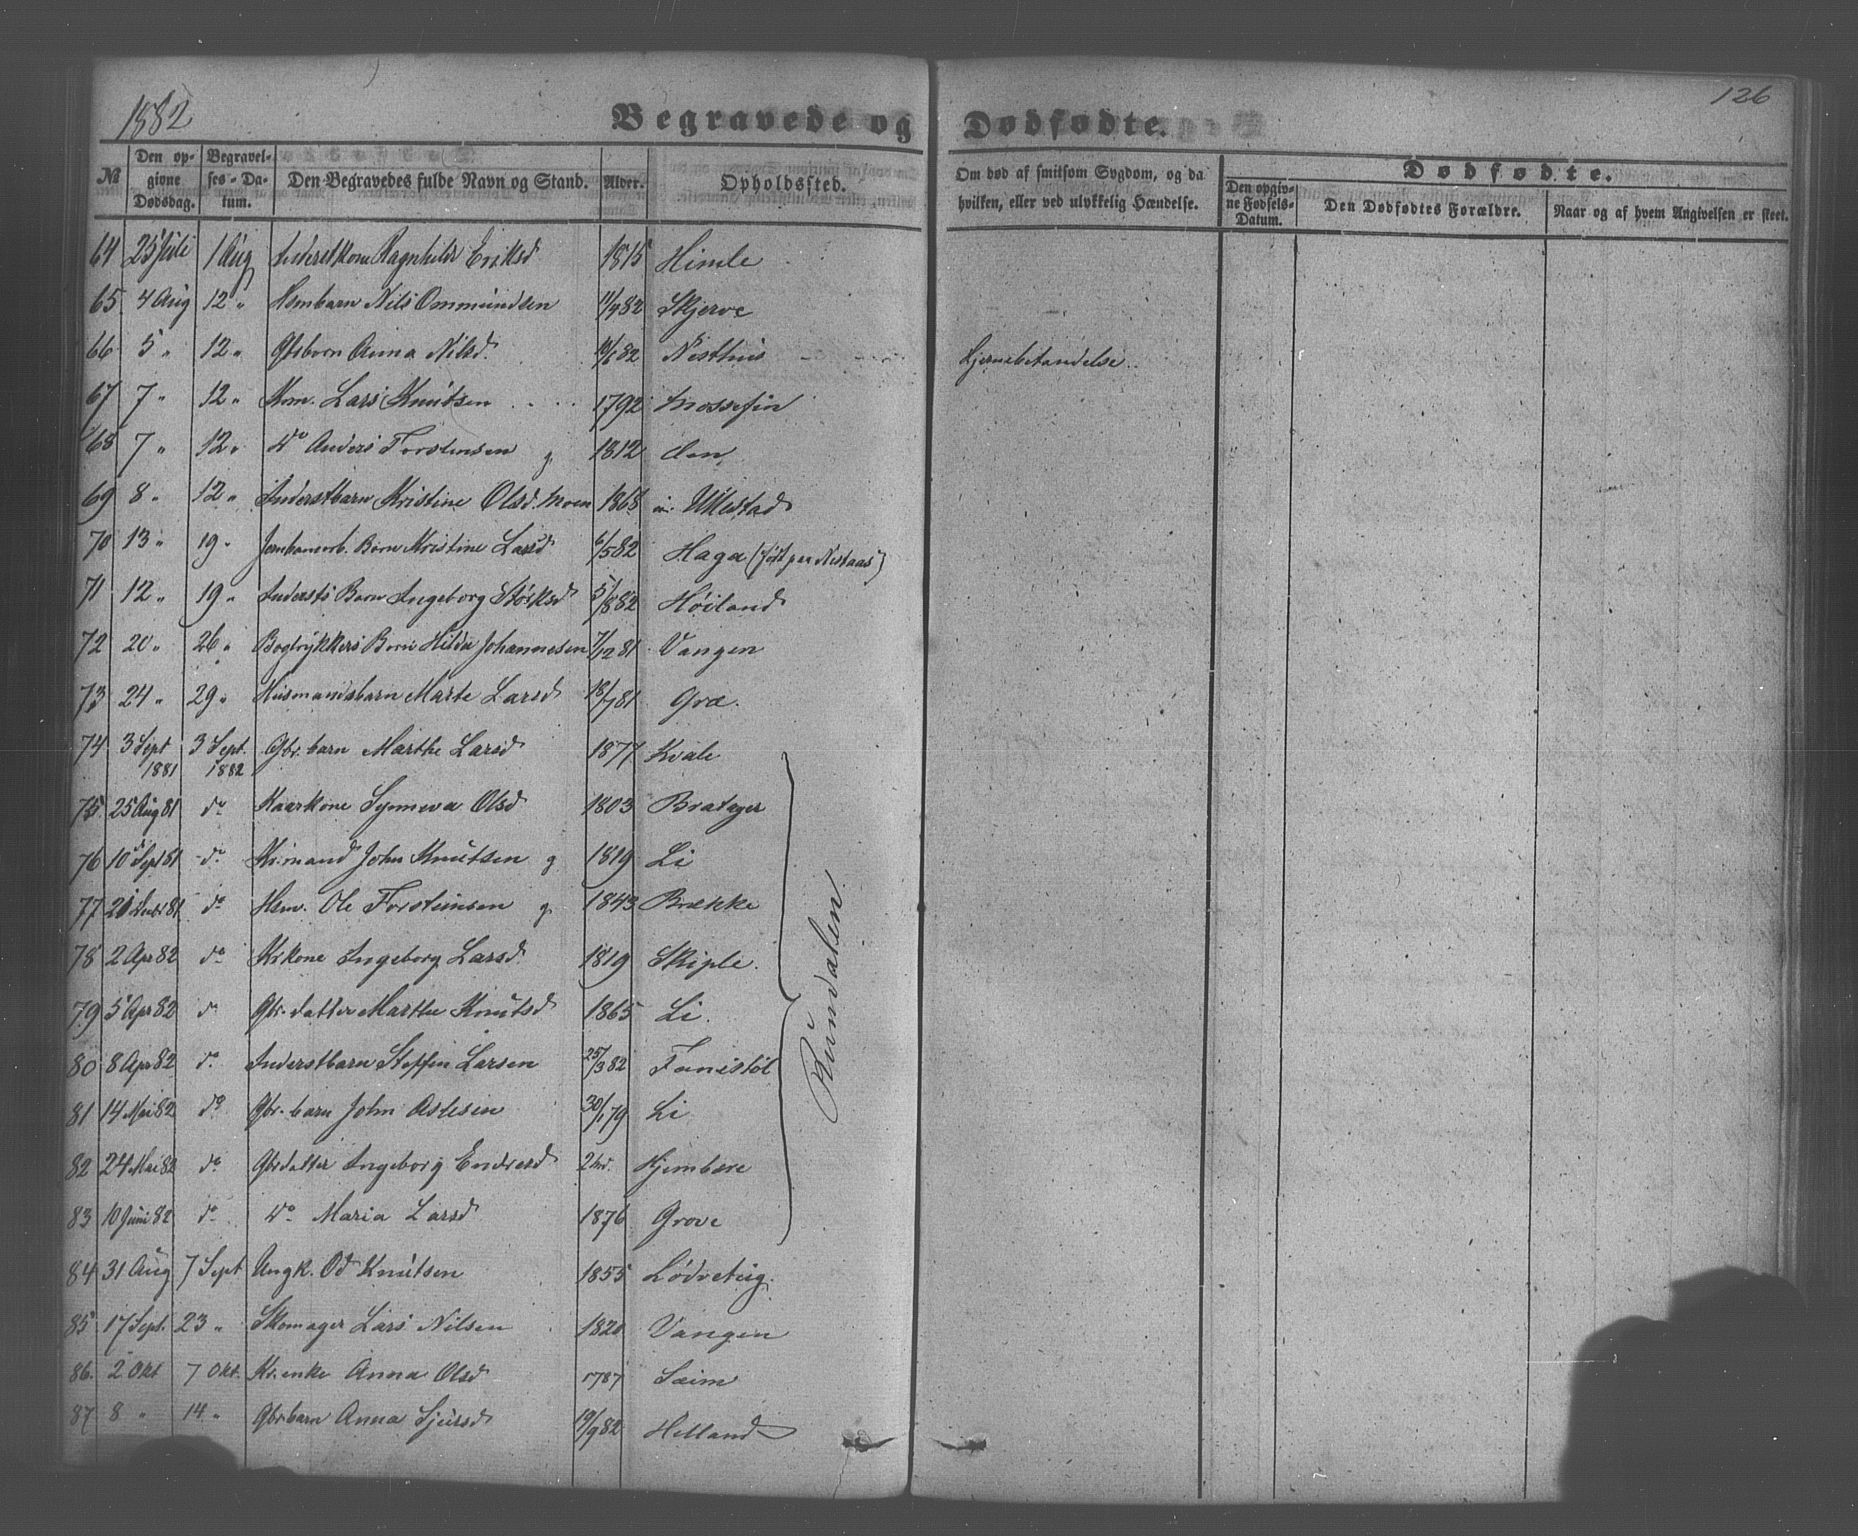 1882
Begravede og Dødfødte.
126
No
Den opgivne Dødsdag.
Begravelses-Datum.
Den Begravedes fulde Navn og Stand.
Alder.
Opholdssted.
Om død af smitsom Sygdom, og da hvilken, eller ved ulykkelig Hændelse.
Dødfødte.
Den opgivne Fødsels-Datum.
Den Dødfødtes Forældre.
Naar og af hvem Angivelsen er skeet.
64 25 Juli 1 Aug Inderstkone Ragnhilde Eriksd 1815 Himle
65 4 Aug 12 " Hsmbarn Nils Ommundsen 11/7 82 Skjerve
66 5 " 12 " Gbrbarn Anna Nilsd. 82 Nesthus Hjernebetændelse
67 7 " 12 " Lars Knutsen 1792 Mossefin
68 7 " 12 " do Anders Torstensen g 1812 Øen
69 8 " 12 " Inderstbarn Kristine Olsd. Moen 1868 Ullestad
70 13 " 19 " Jernbanearb. Barn Kristine Larsd 6/5 82 Haga (født paa Nestaas)
71 12 " 19 " Dødersts Barn Ingeborg Størksd 5/8 82 Høiland
72 20 " 26 " Bogtrykkers Barn Hilda Johannesen 7/12 81 Vangen
73 24 " 29 " Husmandsbarn Marte Larsd 18/7 81 Gra.
74 3 Sept 1881 3 Sept. 1882 Gbr. barn Marthe Larsd 1877 Kvale
75 25 Aug 81 do Kaarkone Synneva Olsd 1803 Bratager
76 10 Sept 81 do Kr.mand John Knutsen g 1819 Li
77 21 81 do Hsm. Ole Torstensen g. 1843 Brække
78 2 Apr 82 do Kr.kone Ingeborg Larsd. 1819 Skiple.
79 5 Apr 82 do Gbr. datter Marthe Knutsd 1865 Li.
80 8 Apr 82 do Inderstbarn Steffen Larsen 25/3 82 Fonistøl
81 14 Mai 82 do Gbr. barn John Aslesen 30/1 79 Li
82 24 Mai 82 do Gbrdatter Ingeborg Endresd Hjembære
83 10 Juni 82 do do Maria Larsd 1876 Grove
Rundalen
84 31 Aug 7 Sept Ungk. Od Knutsen 1855 Lødvetug.
85 17 Sept. 23 " Skomager Lars Nilsen 1820 Vangen
86. 2 Okt 7 Okt. Kr.enke Anna Olsd 1787 Seim
87 8 " 14 " Gbrbarn Anna Sjursd 19/9 82 Helland